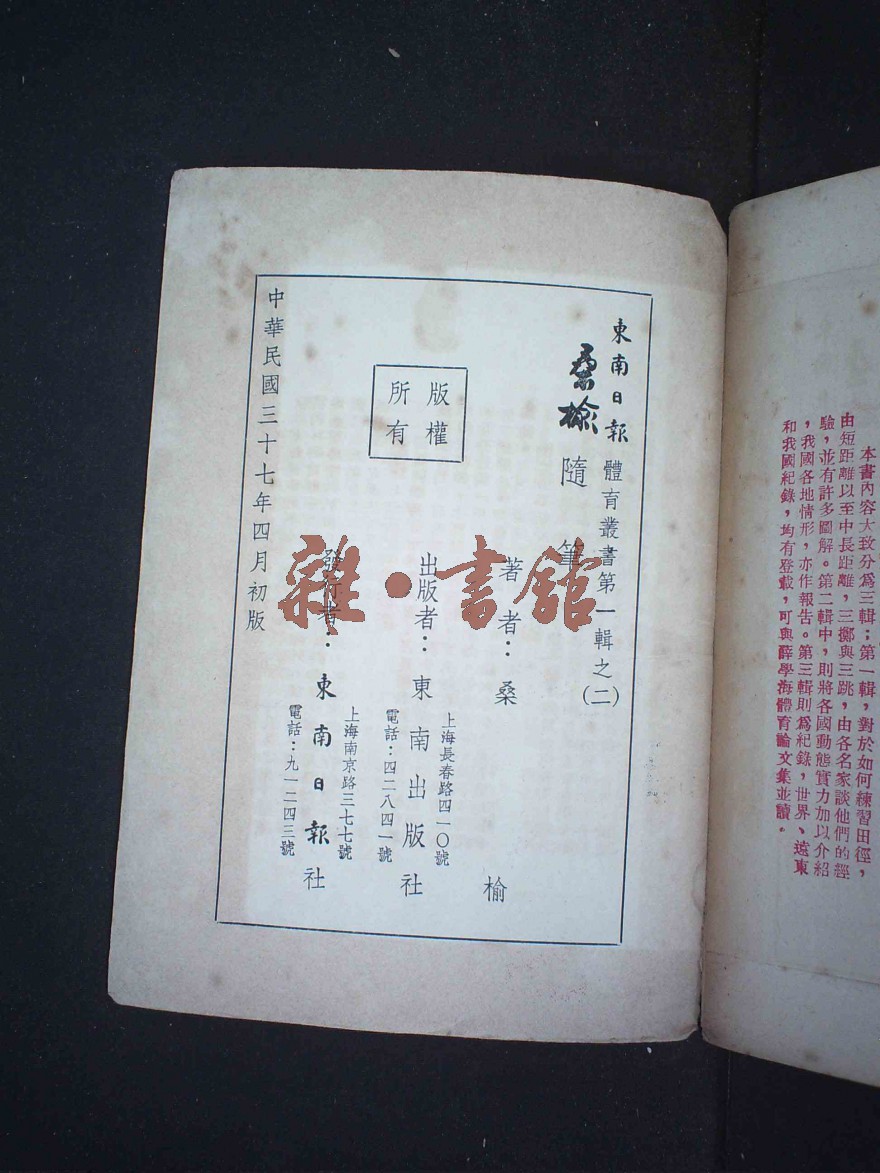 東南日報體育叢書第一輯之(二)
桑榆隨筆
著者：桑榆
出版者：東南出版社
上海長春路四一〇號
電話：四二八四一號
發行者：東南日報社
上海南京路三七七號
電話：九一二四三號
版權
所有
中華民國三十七年四月初版
雜·書館
本書內容大致分爲三輯：第一輯，對於如何練習田徑，
由短距離以至中長距離，三擲與三跳，由各名家談他們的經
驗，並有許多圖解。第二輯中，則將各國動態實力加以介紹
，我國各地情形，亦作報告。第三輯則爲紀錄，世界、遠東
和我國紀錄，均有登載，可與薛學海體育論文集並讀。